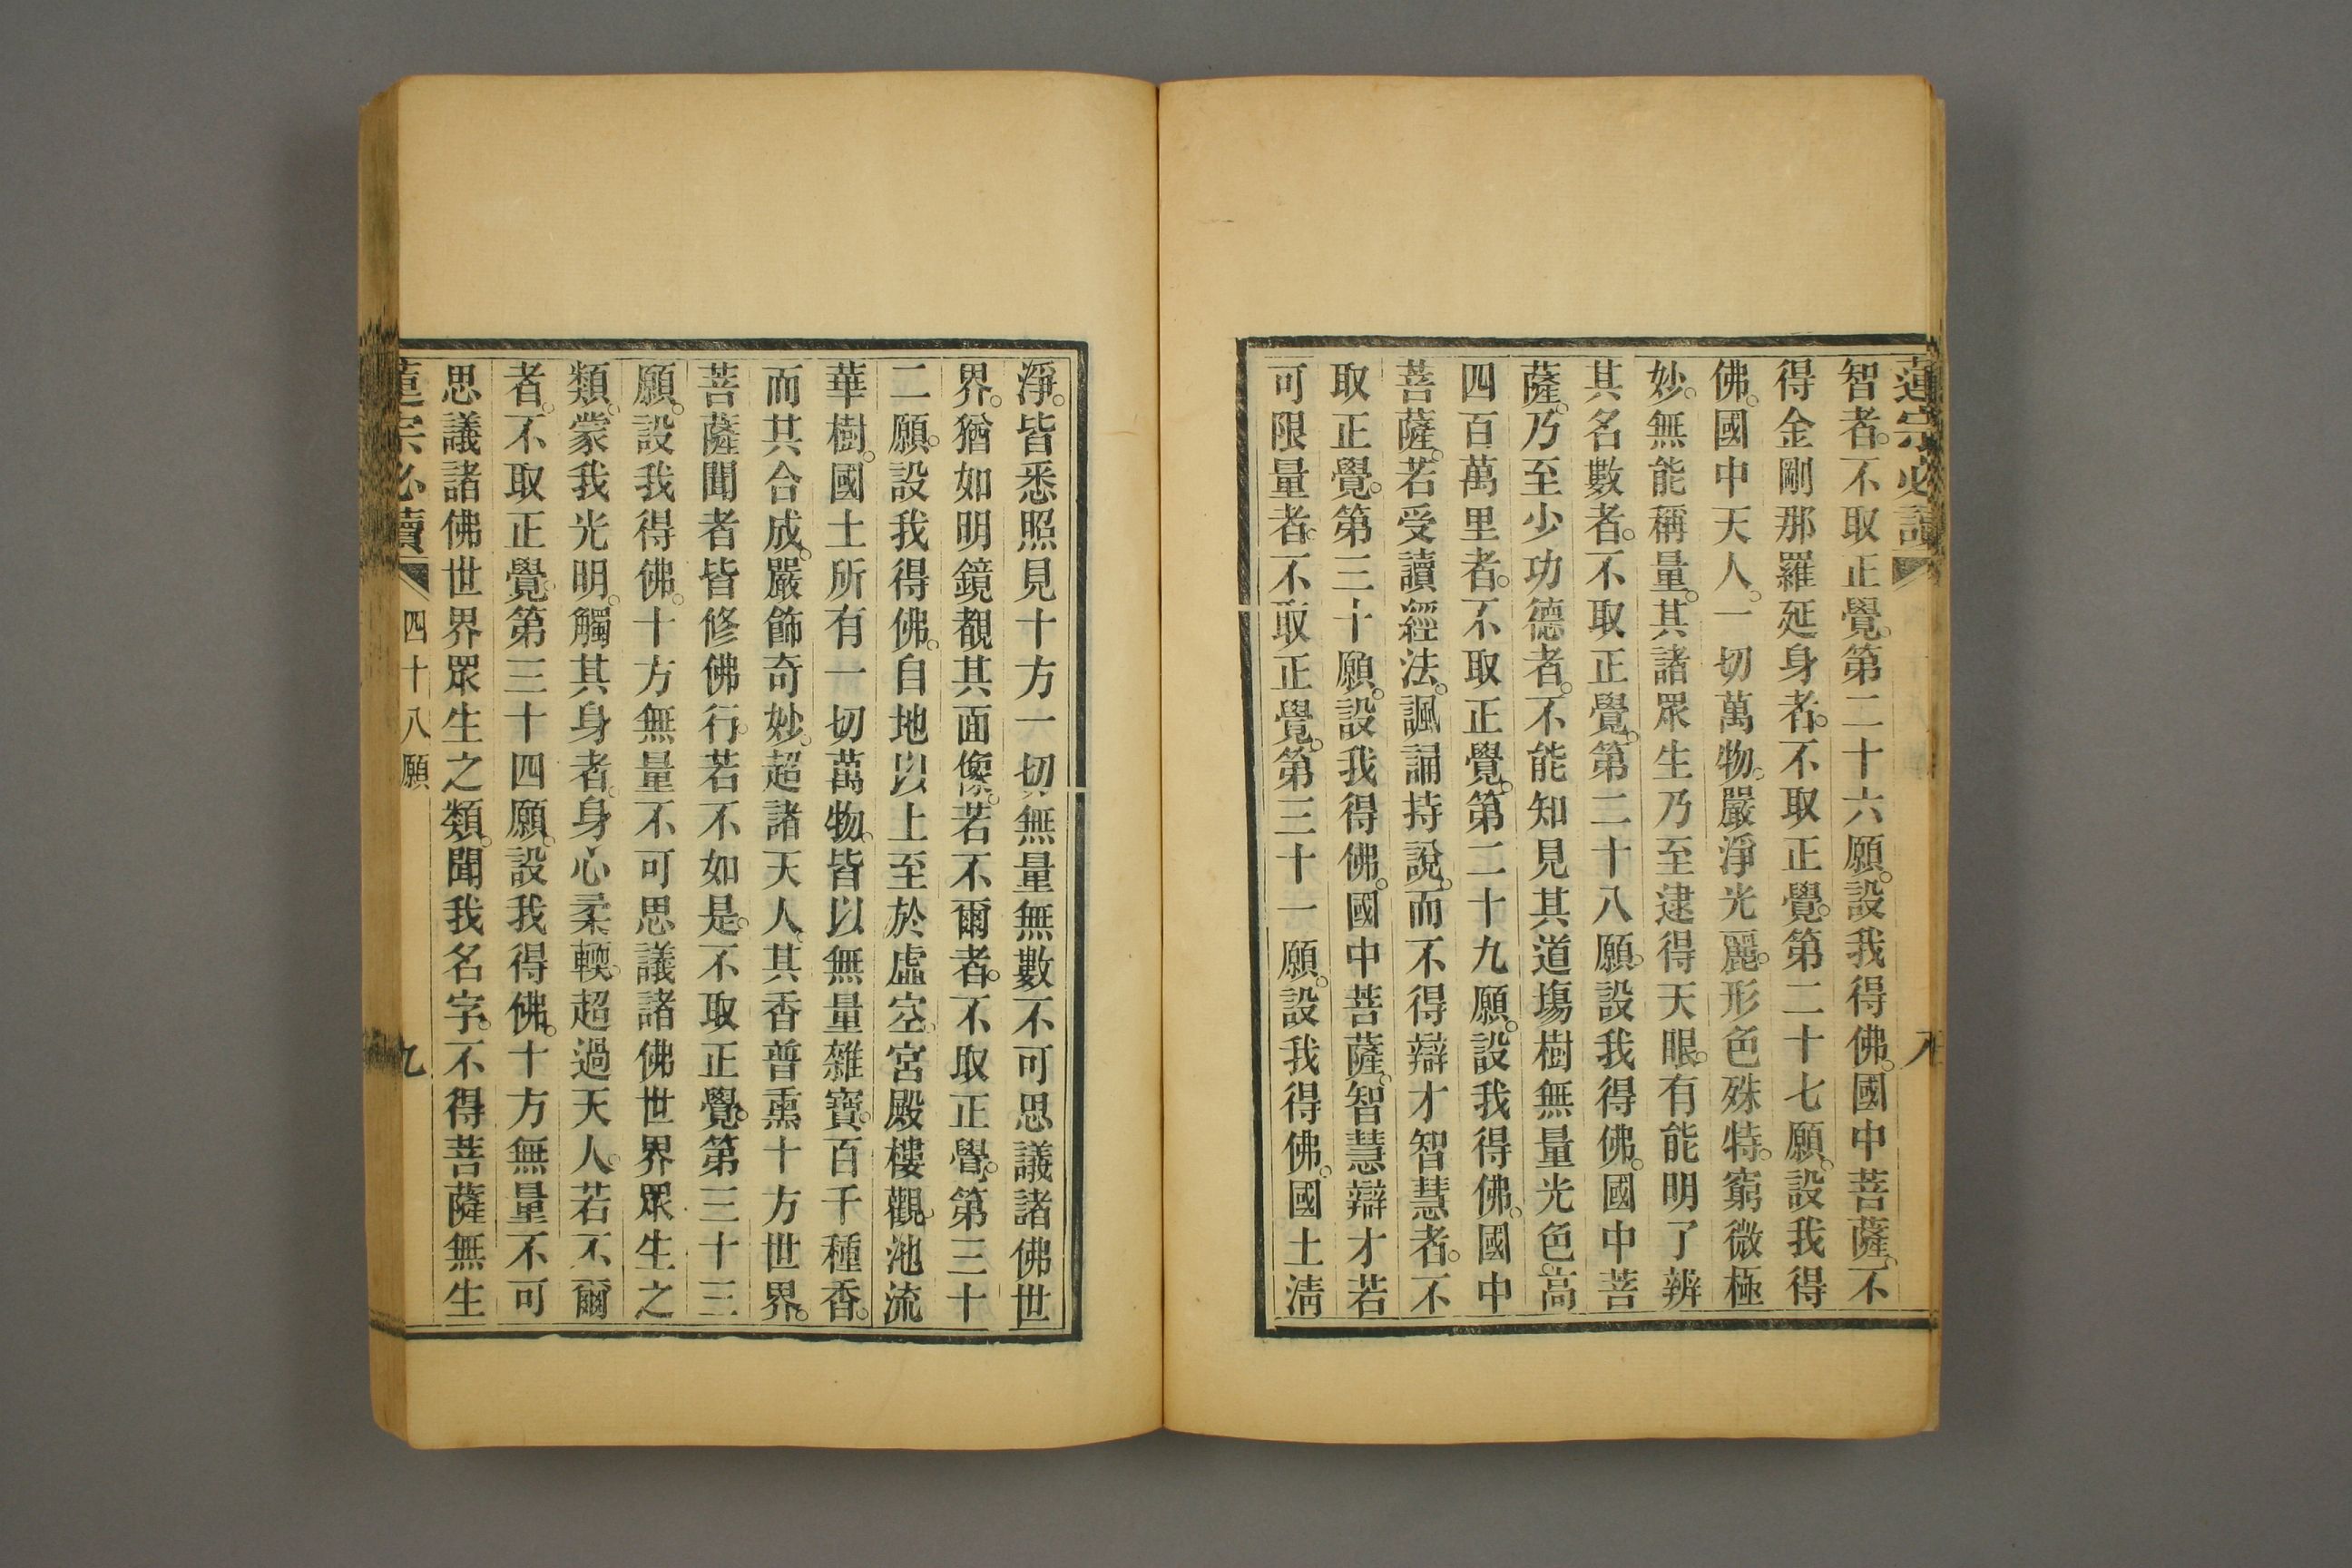 蓮宗必讀
八
智者。不取正覺。第二十六願。設我得佛。國中菩薩。不
得金剛那羅延身者。不取正覺。第二十七願。設我得
佛。國中天人。一切萬物。嚴淨光麗。形色殊特。窮微極
妙。無能稱量。其諸眾生乃至逮得天眼。有能明了辨
其名數者。不取正覺。第二十八願。設我得佛。國中菩
薩。乃至少功德者。不能知見其道場樹無量光色。高
四百萬里者。不取正覺。第二十九願。設我得佛。國中
菩薩。若受讀經法。諷誦持說。而不得辯才智慧者。不
取正覺。第三十願。設我得佛。國中菩薩。智慧辯才若
可限量者。不取正覺。第三十一願。設我得佛。國土清
淨。皆悉照見十方一切無量無數不可思議諸佛世
界。猶如明鏡覩其面像。若不爾者。不取正覺。第三十
二願。設我得佛。自地以上至於虛空。宮殿樓觀。池流
華樹。國土所有一切萬物。皆以無量雜寶。百千種香。
而其合成。嚴飾奇妙。超諸天人。其香普熏十方世界。
菩薩聞者皆修佛行。若不如是。不取正覺。第三十三
願。設我得佛。十方無量不可思議諸佛世界眾生之
類。蒙我光明。觸其身者。身心柔輭。超過天人。若不爾
者。不取正覺。第三十四願。設我得佛。十方無量不可
思議諸佛世界眾生之類。聞我名字。不得菩薩無生
蓮宗必讀
四十八願
九